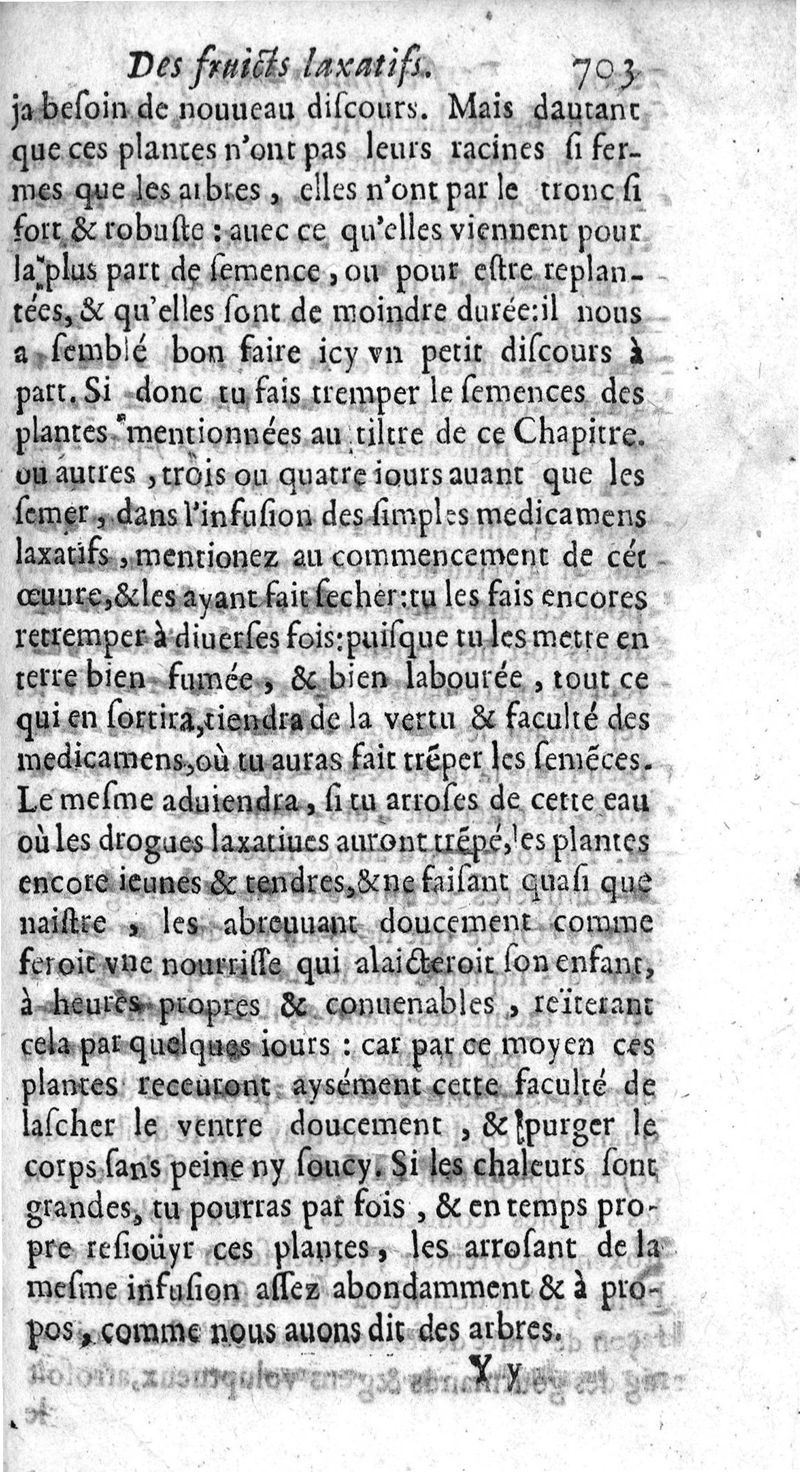 Des fruicts laxatifs. 703
ja beſoin de nouueau diſcours. Mais dautant
que ces plantes n'ont pas leurs racines ſi fer-
mes que les arbres, elles n'ont par le tronc ſi
fort & robuſte : auec ce qu'elles viennent pour
la plus part de ſemence, ou pour eſtre replan-
tées, & qu'elles ſont de moindre durée:il nous
a ſemblé bon faire icy vn petit diſcours à
part. Si donc tu fais tremper le ſemences des
plantes mentionnées au tiltre de ce Chapitre.
ou autres, trois ou quatre iours auant que les
ſemer, dans l'infuſion des ſimples medicamens
laxatifs, mentionez au commencement de cét
œuure,&les ayant fait ſecher:tu les fais encores
retremper à diuerſes fois:puiſque tu les mette en
terre bien fumée, & bien labourée, tout ce
qui en ſortira,tiendra de la vertu & faculté des
medicamens,où tu auras fait trẽper les ſemẽces.
Le meſme aduiendra, ſi tu arroſes de cette eau
où les drogues laxatiues auront trẽpé,les plantes
encore ieunes & tendres,&ne faiſant quaſi que
naiſtre, les abreuuant doucement comme
feroit vne nourriſſe qui alaicteroit ſon enfant,
à heures propres & conuenables, reïterant
cela par quelques iours : car par ce moyen ces
plantes receuront aysément cette faculté de
laſcher le ventre doucement, & purger le
corps ſans peine ny ſoucy. Si les chaleurs ſont
grandes, tu pourras par fois, & en temps pro-
pre reſioüyr ces plantes, les arroſant de la
meſme infuſion aſſez abondamment & à pro-
pos, comme nous auons dit des arbres.
Y y